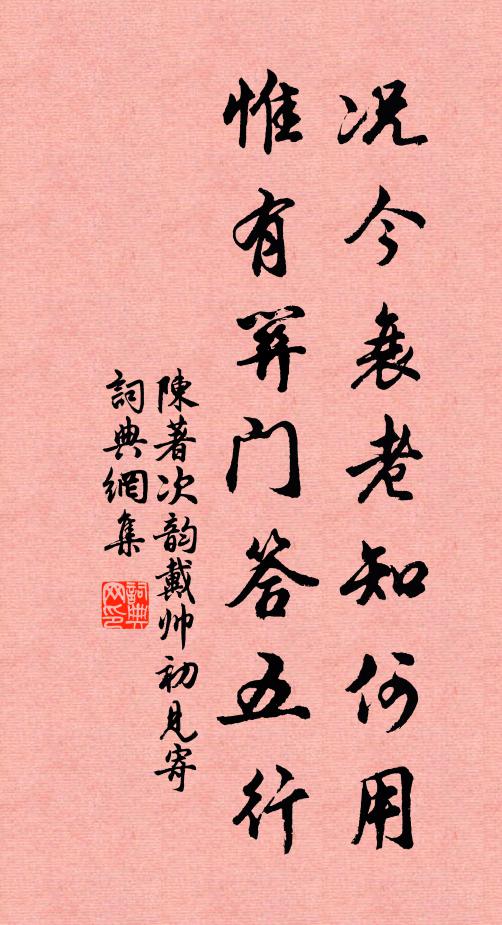 况今衰老知何用
惟有关门答五行
陳著次韵戴帅初見寄
詞典網集
詞典网印